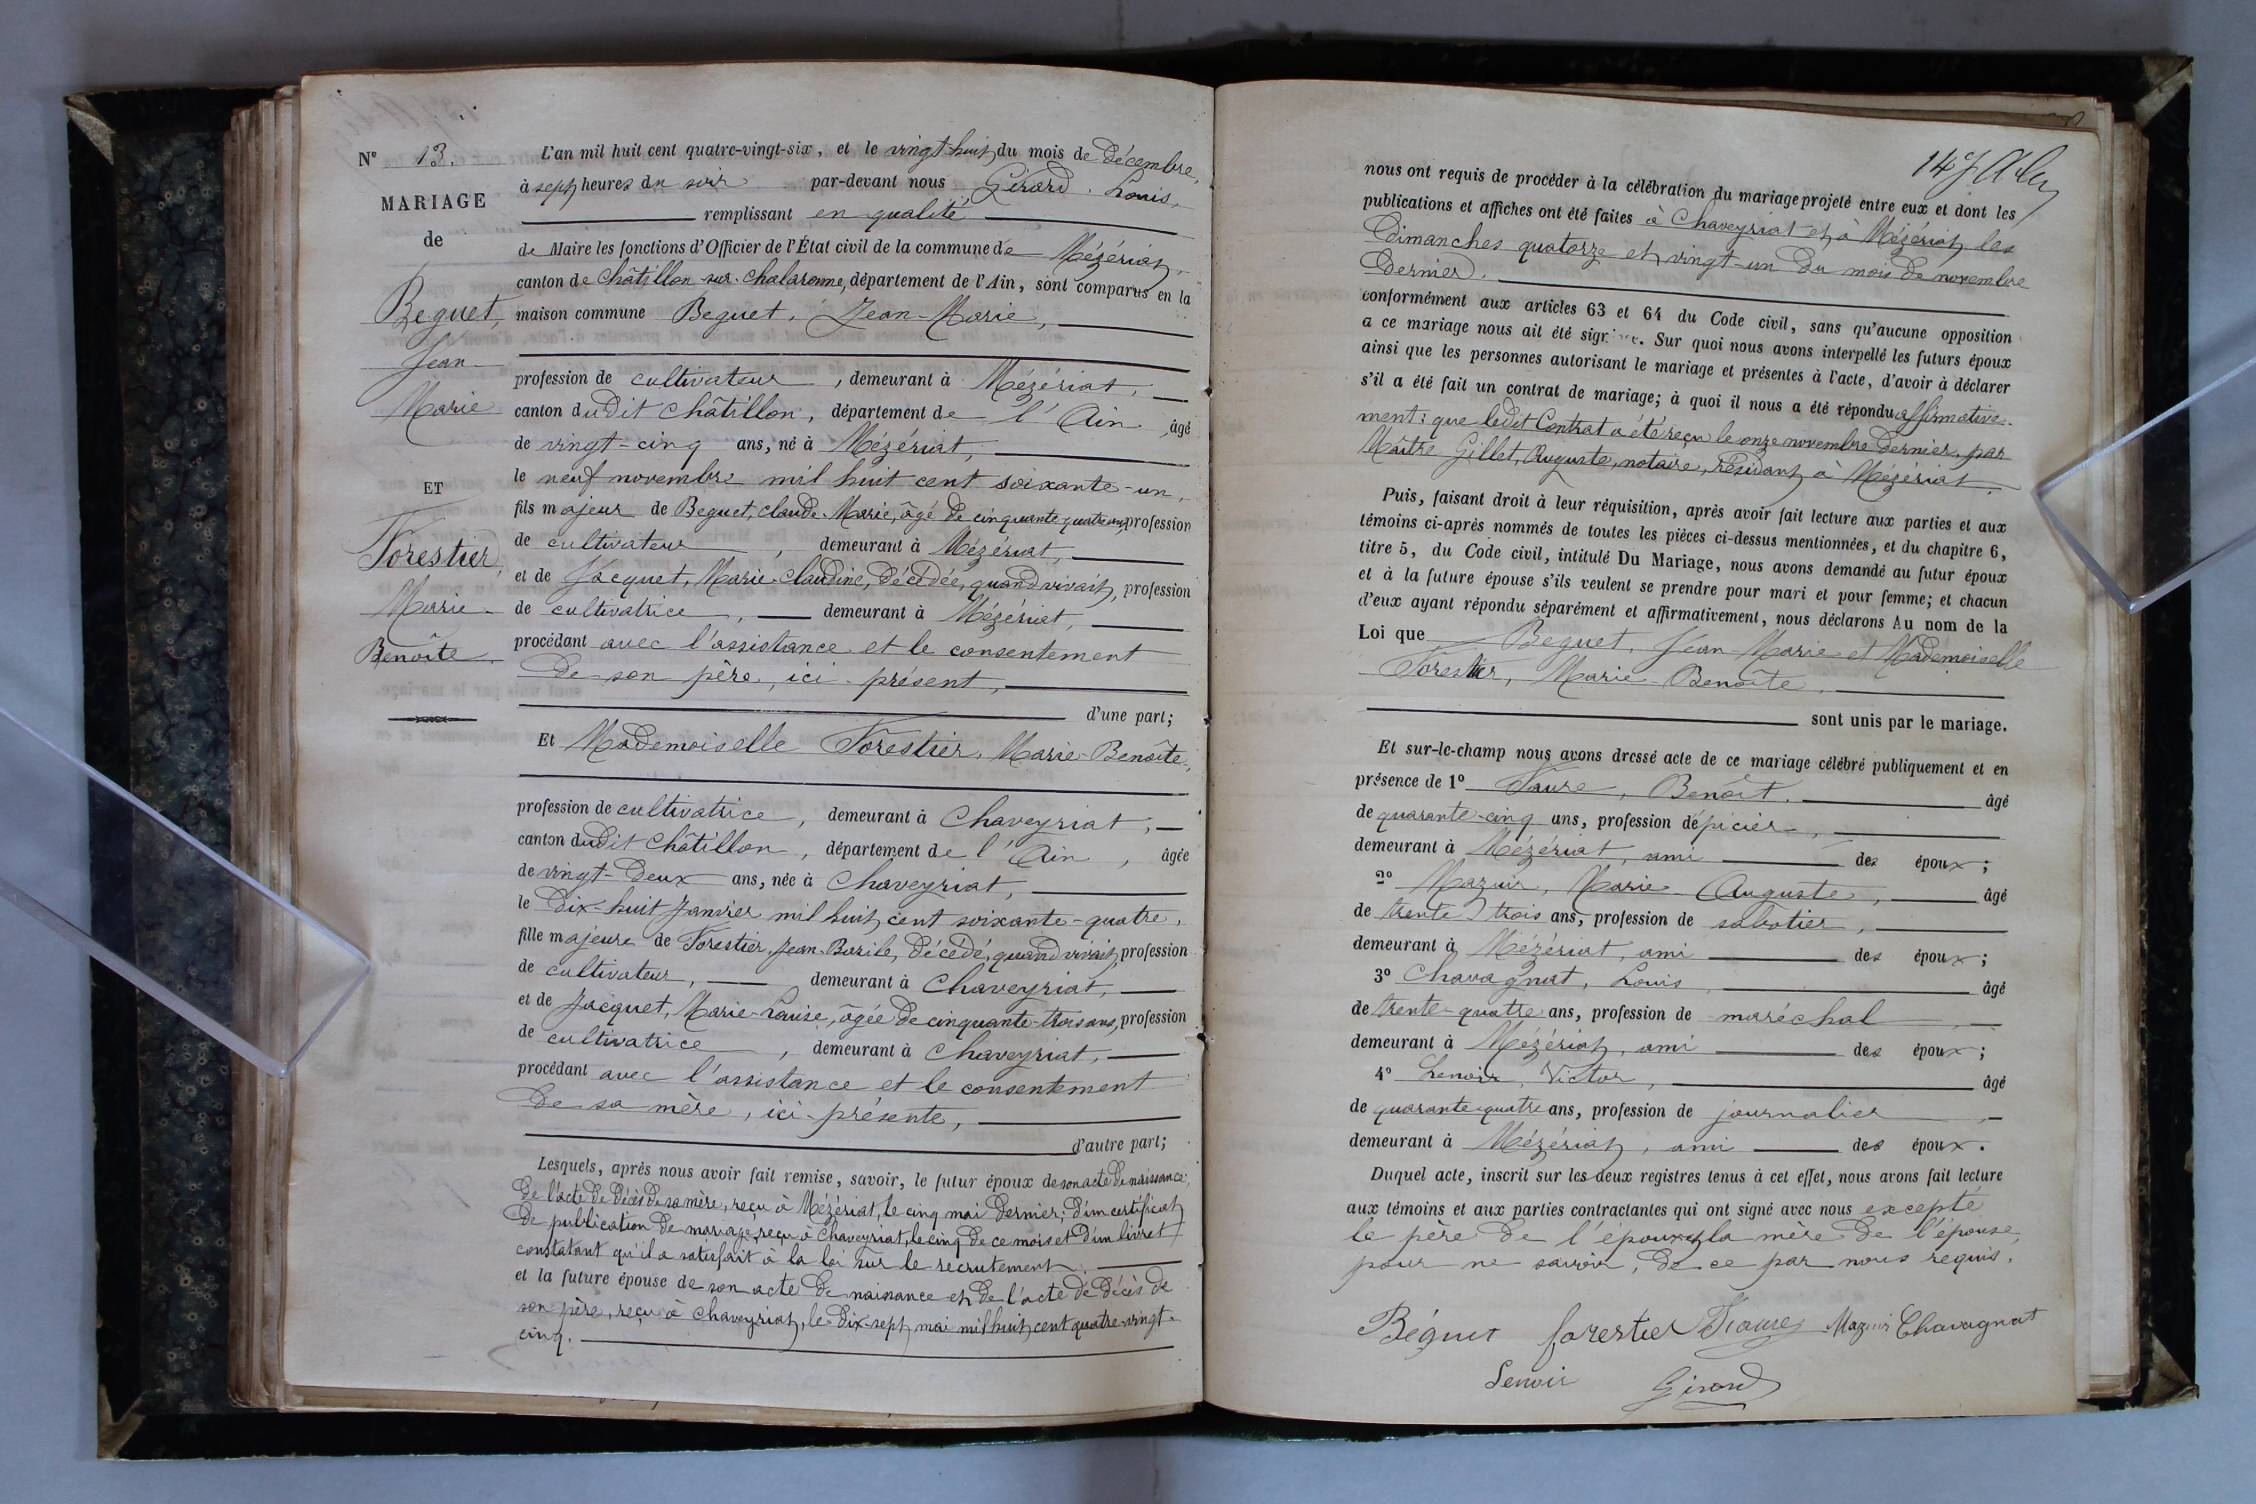 N° 13.
MARIAGE
de
Beguet,
Jean-
Marie
ET
Forestier,
Marie-
Benoîte.
L'an mil huit cent quatre-vingt-six, et le vingt-huit du mois de Décembre,
à sept heures du soir par-devant nous Girard, Louis,
remplissant en qualité
de Maire les fonctions d'Officier de l'État civil de la commune de Mézériat,
canton de Châtillon-sur-Chalaronne, département de l'Ain, sont comparus en la
maison commune Beguet, Jean-Marie,
profession de cultivateur, demeurant à Mézériat,
canton dudit Châtillon, département de l'Ain, âgé
de vingt-cinq ans, né à Mézériat,
le neuf novembre mil huit cent soixante-un,
fils majeur de Beguet, Claude-Marie, âgé de cinquante quatre ans, profession
de cultivateur, demeurant à Mézériat,
et de Jacquet, Marie-Claudine, décédée, quand vivait, profession
de cultivatrice, demeurant à Mézériat,
procédant avec l'assistance et le consentement
de son père, ici-présent,
d'une part;
Et Mademoiselle Forestier, Marie-Benoîte,
profession de cultivatrice, demeurant à Chaveyriat,
canton dudit Châtillon, département de l'Ain, âgée
de vingt-deux ans, née à Chaveyriat,
le dix-huit Janvier mil huit cent soixante-quatre,
fille majeure de Forestier, Jean-Basile, décédé, quand vivait, profession
de cultivateur, demeurant à Chaveyriat,
et de Jacquet, Marie-Louise, âgée de cinquante-trois ans, profession
de cultivatrice, demeurant à Chaveyriat,
procédant avec l'assistance et le consentement
de sa mère, ici-présente,
d'autre part;
Lesquels, après nous avoir fait remise, savoir, le futur époux de son acte de naissance,
de l'acte de décès de sa mère, reçu à Mézériat, le cinq mai dernier; d'un certificat
de publication de mariage, reçu à Chaveyriat, le cinq de ce mois et d'un livret
constatant qu'il a satisfait à la loi sur le recrutement.
et la future épouse de son acte de naissance et de l'acte de décès de
son père, reçu à Chaveyriat, le dix-sept mai mil huit cent quatre-vingt-
cinq.
147
nous ont requis de procéder à la célébration du mariage projeté entre eux et dont les
publications et affiches ont été faites à Chaveyriat et à Mézériat, les
Dimanches quatorze et vingt-un du mois de novembre
dernier.
conformément aux articles 63 et 64 du Code civil, sans qu'aucune opposition
a ce mariage nous ait été . Sur quoi nous avons interpellé les futurs époux
ainsi que les personnes autorisant le mariage et présentes à l'acte, d'avoir à déclarer
s'il a été fait un contrat de mariage; à quoi il nous a été répondu affirmative-
ment: que ledit Contrat a été reçu le onze novembre dernier, par
Maître Gillet, Auguste, notaire, résidant à Mézériat.
Puis, faisant droit à leur réquisition, après avoir fait lecture aux parties et aux
témoins ci-après nommés de toutes les pièces ci-dessus mentionnées, et du chapitre 6,
titre 5, du Code civil, intitulé Du Mariage, nous avons demandé au futur époux
et à la future épouse s'ils veulent se prendre pour mari et pour femme; et chacun
d'eux ayant répondu séparément et affirmativement, nous déclarons Au nom de la
Loi que Beguet, Jean-Marie et Mademoiselle
Forestier, Marie-Benoîte,
sont unis par le mariage.
Et sur-le-champ nous avons dressé acte de ce mariage célébré publiquement et en
présence de 1° Faure, Benoît, âgé
de quarante-cinq ans, profession d'épicier,
demeurant à Mézériat, ami des époux;
2° Mazuir, Marie Auguste, âgé
de trente-trois ans, profession de sabotier,
demeurant à Mézériat, ami des époux;
3° Chavagnat, Louis, âgé
de trente-quatre ans, profession de maréchal,
demeurant à Mézériat, ami des époux;
4° Lenoir, Victor, âgé
de quarante-quatre ans, profession de journalier,
demeurant à Mézériat, ami des époux.
Duquel acte, inscrit sur les deux registres tenus à cet effet, nous avons fait lecture
aux témoins et aux parties contractantes qui ont signé avec nous excepté
le père de l'époux et la mère de l'épouse,
pour ne savoir, de ce par nous requis.
Béguet forestier Faure Mazuir Chavagnat
Lenoir Girard